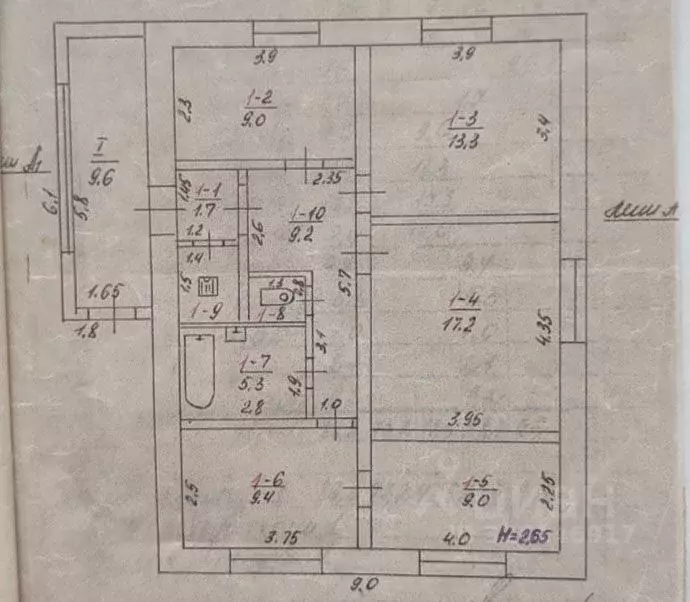 3.9
3.9
2.3
1-2
9.0
1-3
13.3
3.4
I
9.6
6.1
5.8
1.45
1-1
1.7
1.2
2.35
2.6
1-10
9.2
1.4
1.5
1-9
1-8
5.7
1-4
17.2
4.35
1.65
1.8
3.1
1-7
5.3
1.9
2.8
1.0
3.95
2.5
1-6
9.4
1-5
9.0
2.25
3.75
4.0
H=2,65
9.0